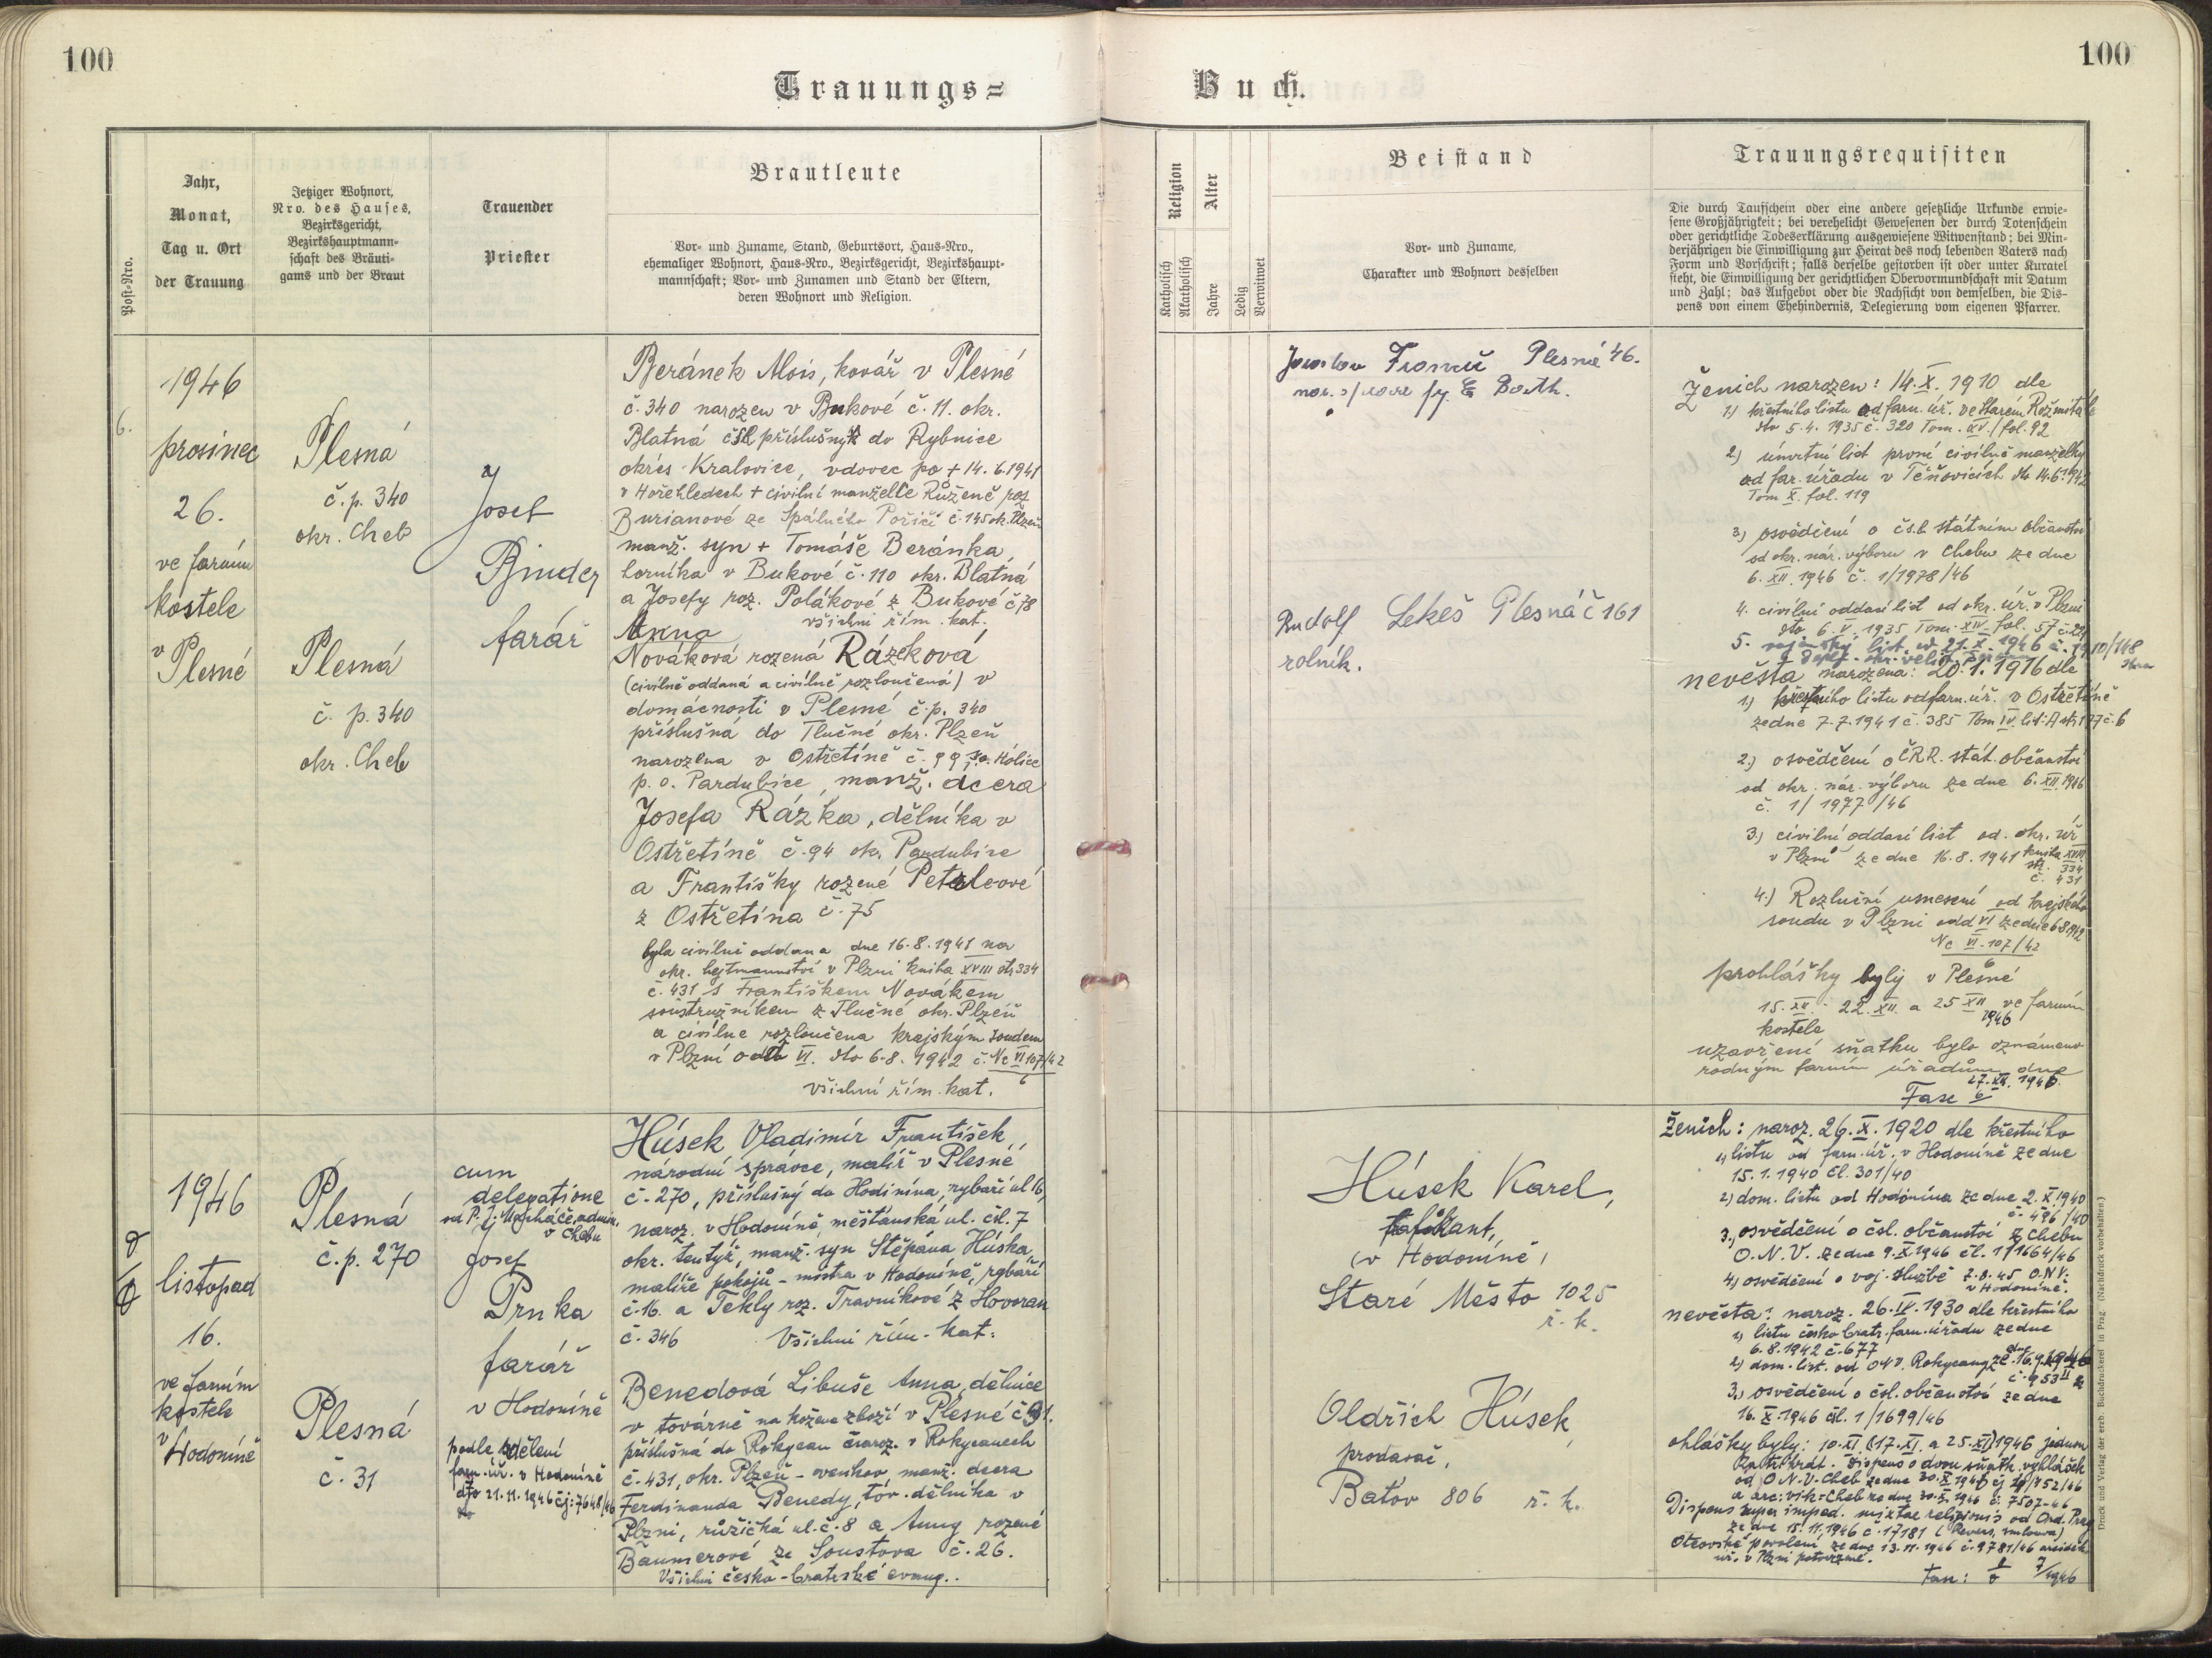 100
100
Trauungs=
Buch.
Post-Nro.
Jahr,
Monat,
Tag u. Ort
der Trauung
Jetziger Wohnort,
Nro. des Hauses,
Bezirksgericht,
Bezirkshauptmann-
schaft des Bräuti-
gams und der Braut
Trauender
Priester
Brautleute
Vor- und Zuname, Stand, Geburtsort, Haus-Nro.,
ehemaliger Wohnort, Haus-Nro., Bezirksgericht, Bezirkshaupt-
mannschaft; Vor- und Zunamen und Stand der Eltern,
deren Wohnort und Religion.
Religion
Katholisch
Akatholisch
Alter
Jahre
Ledig
Verwitwet
Beistand
Vor- und Zuname,
Charakter und Wohnort desselben
Trauungsrequisiten
Die durch Taufschein oder eine andere gesetzliche Urkunde erwie-
sene Großjährigkeit; bei verehelicht Gewesenen der durch Totenschein
oder gerichtliche Todeserklärung ausgewiesene Witwenstand; bei Min-
derjährigen die Einwilligung zur Heirat des noch lebenden Vaters nach
Form und Vorschrift; falls derselbe gestorben ist oder unter Kuratel
steht, die Einwilligung der gerichtlichen Obervormundschaft mit Datum
und Zahl; das Aufgebot oder die Nachsicht von demselben, die Dis-
pens von einem Ehehindernis, Delegierung vom eigenen Pfarrer.
6.
1946
prosinec
26.
ve farním
kostele
v
Plesné
Plesná
č.p. 340
okr. Cheb
Plesná
č. p. 340
okr. Cheb
Josef
Binder
farář
Beránek Alois, kovář v Plesné
č. 340 narozen v Bukové č. 11. okr.
Blatná čsl příslušný do Rybnice
okres Kralovice, vdovec po + 14. 6. 1941
v Hořehledech + civilní manželce Růženě roz
Burianové ze Spáleného Poříčí č. 145 ok. Plzeň
manž. syn + Tomáše Beránka,
horníka v Bukové č. 110 okr. Blatná
a Josefy roz. Polákové z Bukové č 78
všichni řím. kat.
Anna
Nováková rozená Rázková
(civilně oddaná a civilně rozloučená) v
domácnosti v Plesné č.p. 340
příslušná do Tlučné okr. Plzeň
narozena v Ostřetíně č. 99, s.o. Holice
p. o. Pardubice, manž. dcera
Josefa Rázka, dělníka v
Ostřetíně č. 94 ok. Pardubice
a Františky rozené Petrleové
z Ostřetína č. 75
byla civilně oddana dne 16. 8. 1941 na
okr. hejtmanství v Plzni kniha XVIII str 334
č. 431 s Františkem Novákem
soustružníkem z Tlučné okr. Plzeň
a civilne rozloučena krajským soudem
v Plzni odd VI. dto 6. 8. 1942 č. Nc VI 107/42
6
všichni řím. kat.
Jaroslav Plesná 46.
Rudolf Lekeš Plesná č 161
rolník.
Ženich narozen: 14. X. 1910 dle
1) křestního listu od farn. úř. ve Starém Rožmitále
dto 5. 4. 1935 č. 320 Tom. XV. / fol. 92
2) úmrtní list první civilně manželky
od far. úřadu v Těnovicích dto 14. 6. 1942
Tom X. fol. 119
3) osvědčení o čsl. státním občanství
od okr. nár. výboru v Chebu ze dne
6. XII. 1946 č. 1/1978/46
4. civilní oddací list od okr. úř. v Plzni
dto 6. V. 1935 Tom. XIV. fol. 57 č. 22
5. vojenský list 21. X. 1946
nevěsta narozena: 20. 1. 1916 dle
1) křestního listu od farn. úř. v Ostřetíně
ze dne 7. 7. 1941 č. 385 Tom IV. lit: A str 177 č. 6
2) osvědčení o ČRR. stát. občanství
od okr. nár. výboru ze dne 6. XII. 1946
č. 1/1977/46
3.) civilní oddací list od. okr. úř
v Plzni ze dne 16. 8. 1941 kniha XVIII
str. 334
č. 431
4.) Rozluční usnesení od krajského
soudu v Plzni odd VI ze dne 6 8 1942
Nc VI. 107/42
6
prohlášky byly v Plesné
15. XII 22. XII. a 25 XII ve farním
1946
kostele
uzavření sňatku bylo oznámeno
rodným farním úřadům dne
27. XII. 1946.
Fasc 6
1946
listopad
16.
ve farním
kostele
v
Hodoníně
Plesná
č.p. 270
Plesná
č. 31
cum
delegatione
v Chebu
Josef
Prnka
farář
v Hodoníně
podle sdělení
farn. úř. v Hodoníně
dto 21. 11. 1946 čj: 7648/46
Húsek Vladimír František,
národní správce, malíř v Plesné
č. 270, příslušný do Hodonína, rybáří ul 16,
naroz. v Hodoníně, měšťanská ul. čísl. 7
okr. tentýž, manž. syn Štěpána Húska,
malíře pokojů - mistra v Hodoníně, rybáří
č. 16. a Tekly roz. Travníkové z Hovoran
č. 346 Všichni řím. kat.
Benedová Libuše Anna, dělnice
v továrně na kožené zboží v Plesné č 31.
příslušná do Rokycan naroz. v Rokycanech
č. 431, okr. Plzeň - venkov, manž. dcera
Ferdinanda Benedy, tov. dělníka v
Plzni, růžičká ul. č. 8 a Anny rozené
Baumerové ze Soustova č. 26.
Všichni česko-bratrské evang..
Húsek Karel,
(v Hodoníně)
Staré Město 1025
ř. k.
Oldřich Húsek,
prodavač,
Baťov 806 ř. k.
Ženich: naroz. 26. X. 1920 dle křestního
1) listu od farn. úř. v Hodoníně ze dne
15. 1. 1940 čl. 301/40
2) dom. listu od Hodonína ze dne 2. X. 1940
č. 496/40
3) osvědčení o čsl. občanství z Chebu
O. N. V. ze dne 9. X. 1946 čl. 1/1664/46
4) osvědčení o voj. službě 7. 8. 45 O.N.V.
v Hodoníně.
nevěsta: naroz. 26. IV. 1930 dle křestního
1) listu česko bratr. farn. úřadu ze dne
6. 8. 1942 č. 677
2) dom. list. od Rokycany ze dne 16. 9. 1946
3.) osvědčení o čsl. občanství ze dne
16. X. 1946 čsl. 1/1699/46
ohlášky byly: 10. XI. (17. XI. a 25. XI) 1946 jednou
Dispens o dvou sňatk. vyhlášek
od O. N. V. Cheb ze dne 30. X. 1946
a arc. vik. Cheb ze dne 30. X. 1946 č. 7507-46
Dispens super imped. mixtae religionis od Ord. Prag
ze dne 15. 11. 1946 č. 17181 (Revers, smlouva)
Otcovské povolení ze dne 13. 11. 1946 č. 9781/46
úř. v Plzni potvrzené.
Fasc: 7/1946
Druck und Verlag der ereb. Buchdruckerei in Prag. (Nachdruck vorbehalten.)